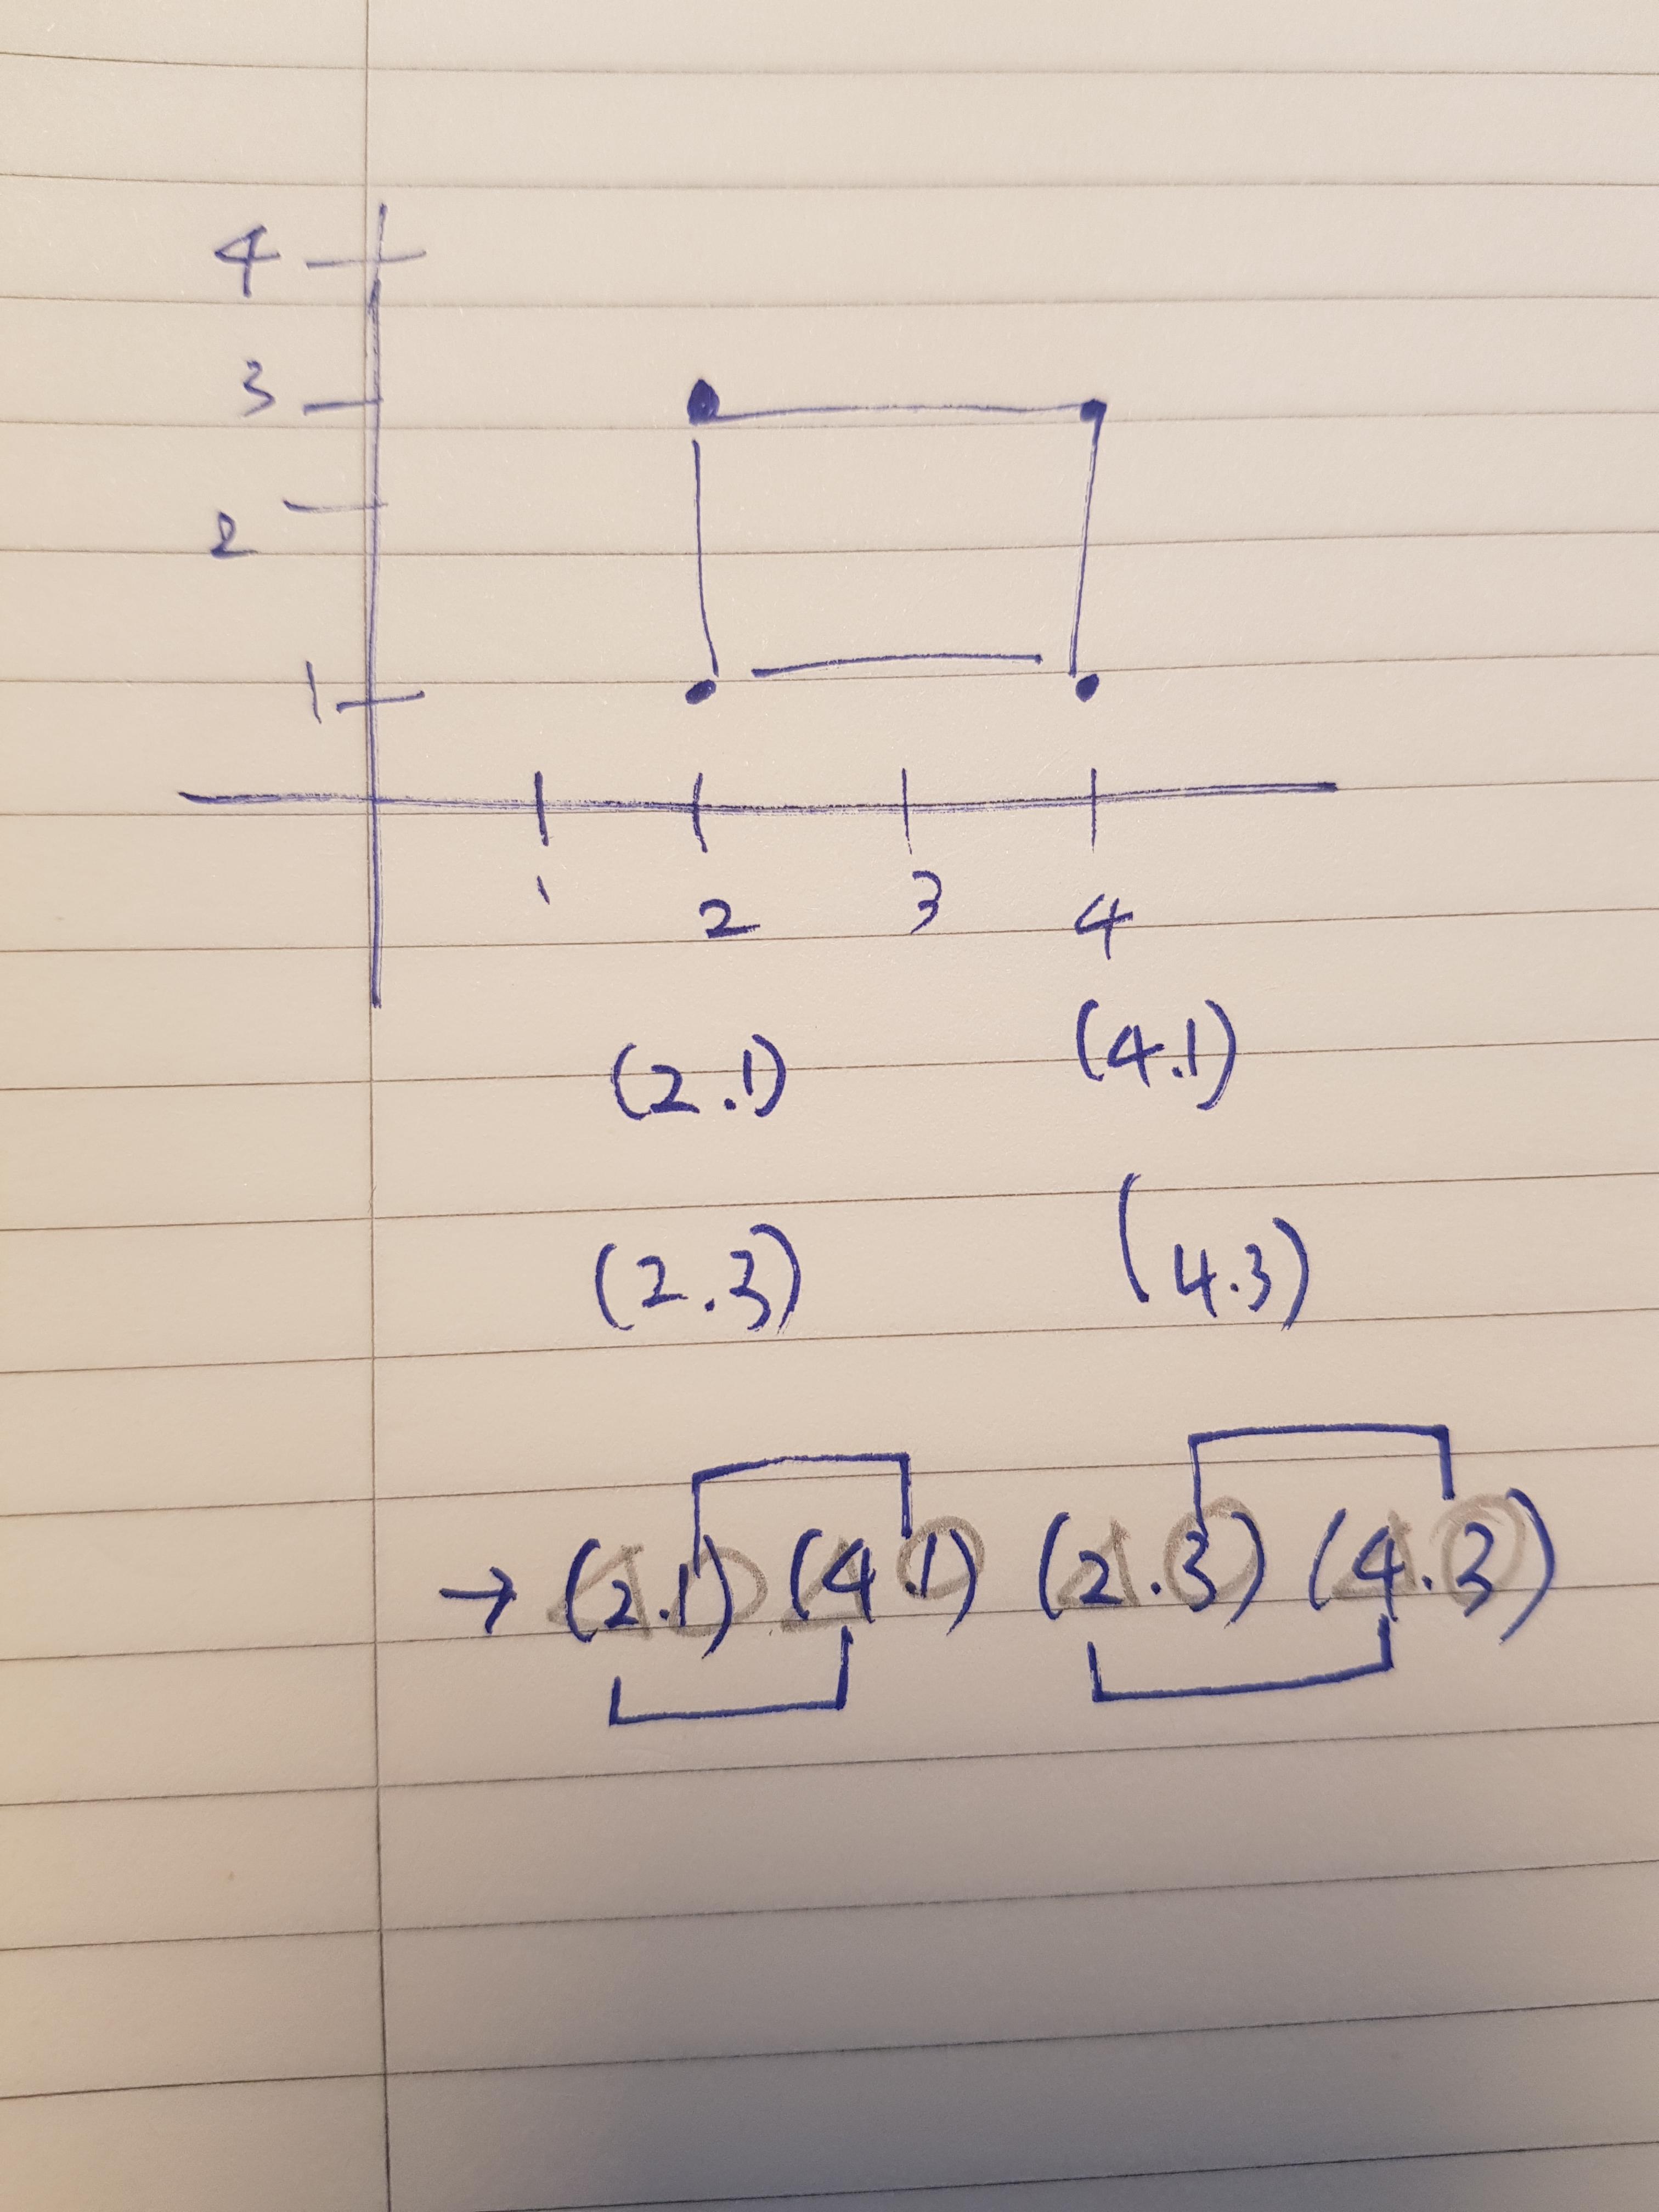 4
3
2
1
1 2 3 4
(2.1) (4.1)
(2.3) (4.3)
→ (2.1) (4.1) (2.3) (4.3)